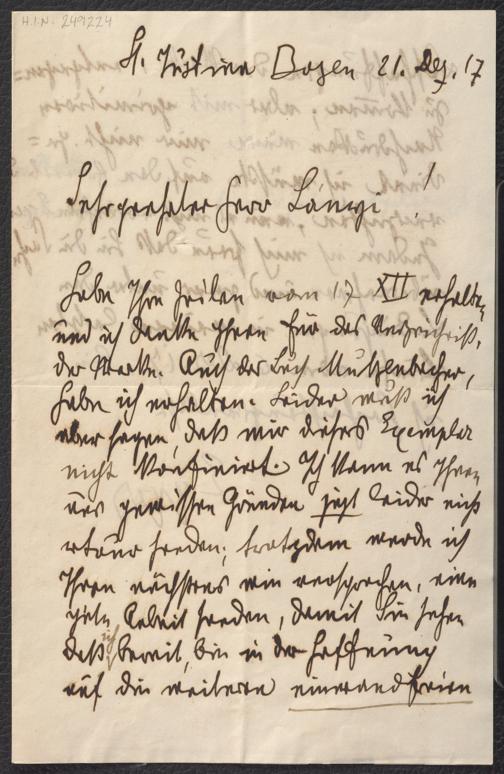 H.I.N. 2491224
St. Justina Bozen 21. Dez. 17
Sehr geehrter Herr Lányi!
Habe Ihre Zeilen vom 17 XII erhalten,
und ich danke Ihnen für das Verzeichniß,
der Werke. Auch das Buch Mutzenbacher,
habe ich erhalten. Leider muß ich
aber sagen, daß mir dieses Exemplar
nicht konfiniert. Ich kann es Ihnen
aus gewissen Gründen jetzt leider nicht
retour senden, trotzdem werde ich
Ihnen nächstens wie versprochen, eine
gute Arbeit senden, damit Sie sehen
daß ich bereit, bin in der Hoffnung
auf die weiteren einwandfreien